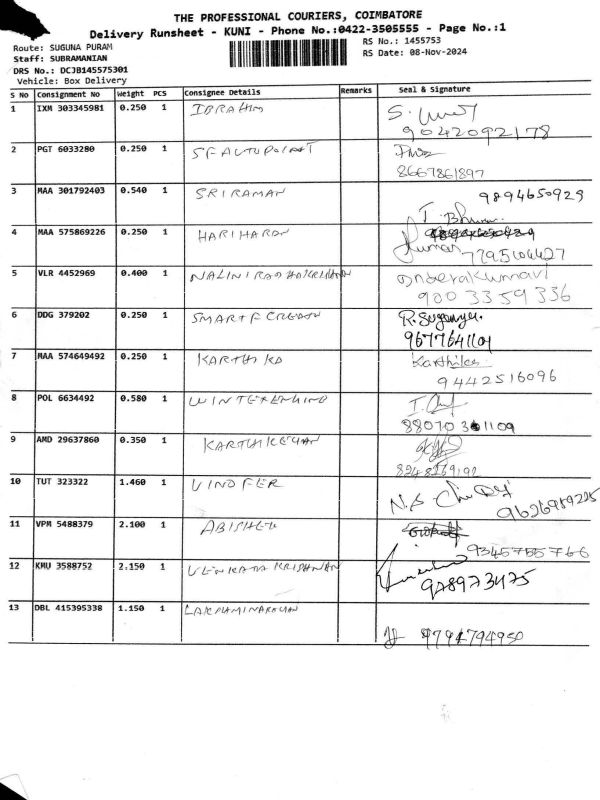 THE PROFESSIONAL COURIERS, COIMBATORE
Delivery Runsheet - KUNI - Phone No.:0422-3505555 - Page No.:1
Route: SUGUNA PURAM
RS No.: 1455753
Staff: SUBRAMANIAN
RS Date: 08-Nov-2024
DRS No.: DCJB145575301
Vehicle: Box Delivery
S No Consignment No Weight PCS Consignee Details Remarks Seal & Signature
1 IXM 303345981 0.250 1 IBRAHIM
9042092178
2 PGT 6033280 0.250 1 SFAUTOPOINT
8667861897
3 MAA 301792403 0.540 1 SRIRAMAN 9894650929
T. Bhuvan
4 MAA 575869226 0.250 1 HARIHARAN
Kumar 7795104427
5 VLR 4452969 0.400 1 NALINI RADHAKRISHNAN
9003359336
6 DDG 379202 0.250 1 SMART F CREATION R. Suganya
9677641101
7 MAA 574649492 0.250 1 KARTHIKA Karthika
9442516096
8 POL 6634492 0.580 1
88070 301109
9 AMD 29637860 0.350 1 KARTHIKEYAN
8248269192
10 TUT 323322 1.460 1 VINOFER
9626989225
11 VPM 5488379 2.100 1 ABISHEK
9345755766
12 KMU 3588752 2.150 1 VENKATA KRISHNAN
978973475
13 DBL 415395338 1.150 1 LAKSHMINARAYAN
9794794950